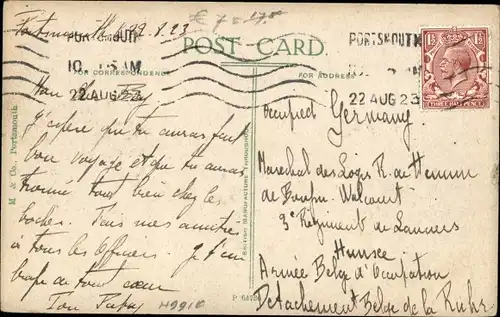 € 7 = 27.00
22.8.23
PORTSMOUTH
10. AM
22 AUG 23
POST CARD.
FOR CORRESPONDENCE
FOR ADDRESS
PORTSMOUTH
22 AUG 23
THREE HALF PENCE
M. & Co., Portsmouth.
BRITISH MANUFACTURE THROUGHOUT
P
Mon
J'espère que tu auras fait
bon voyage et que tu auras
trouvé tout bien chez les
boches. Fais mes amitiés
à tous les Officiers. Je t'em
brasse de tout cœur
Ton Papa
Occupied Germany
Marechal des Logis R. de
de
3e Régiment de Lanciers
Armée Belge d'Occupation
Detachement Belge de la Ruhr